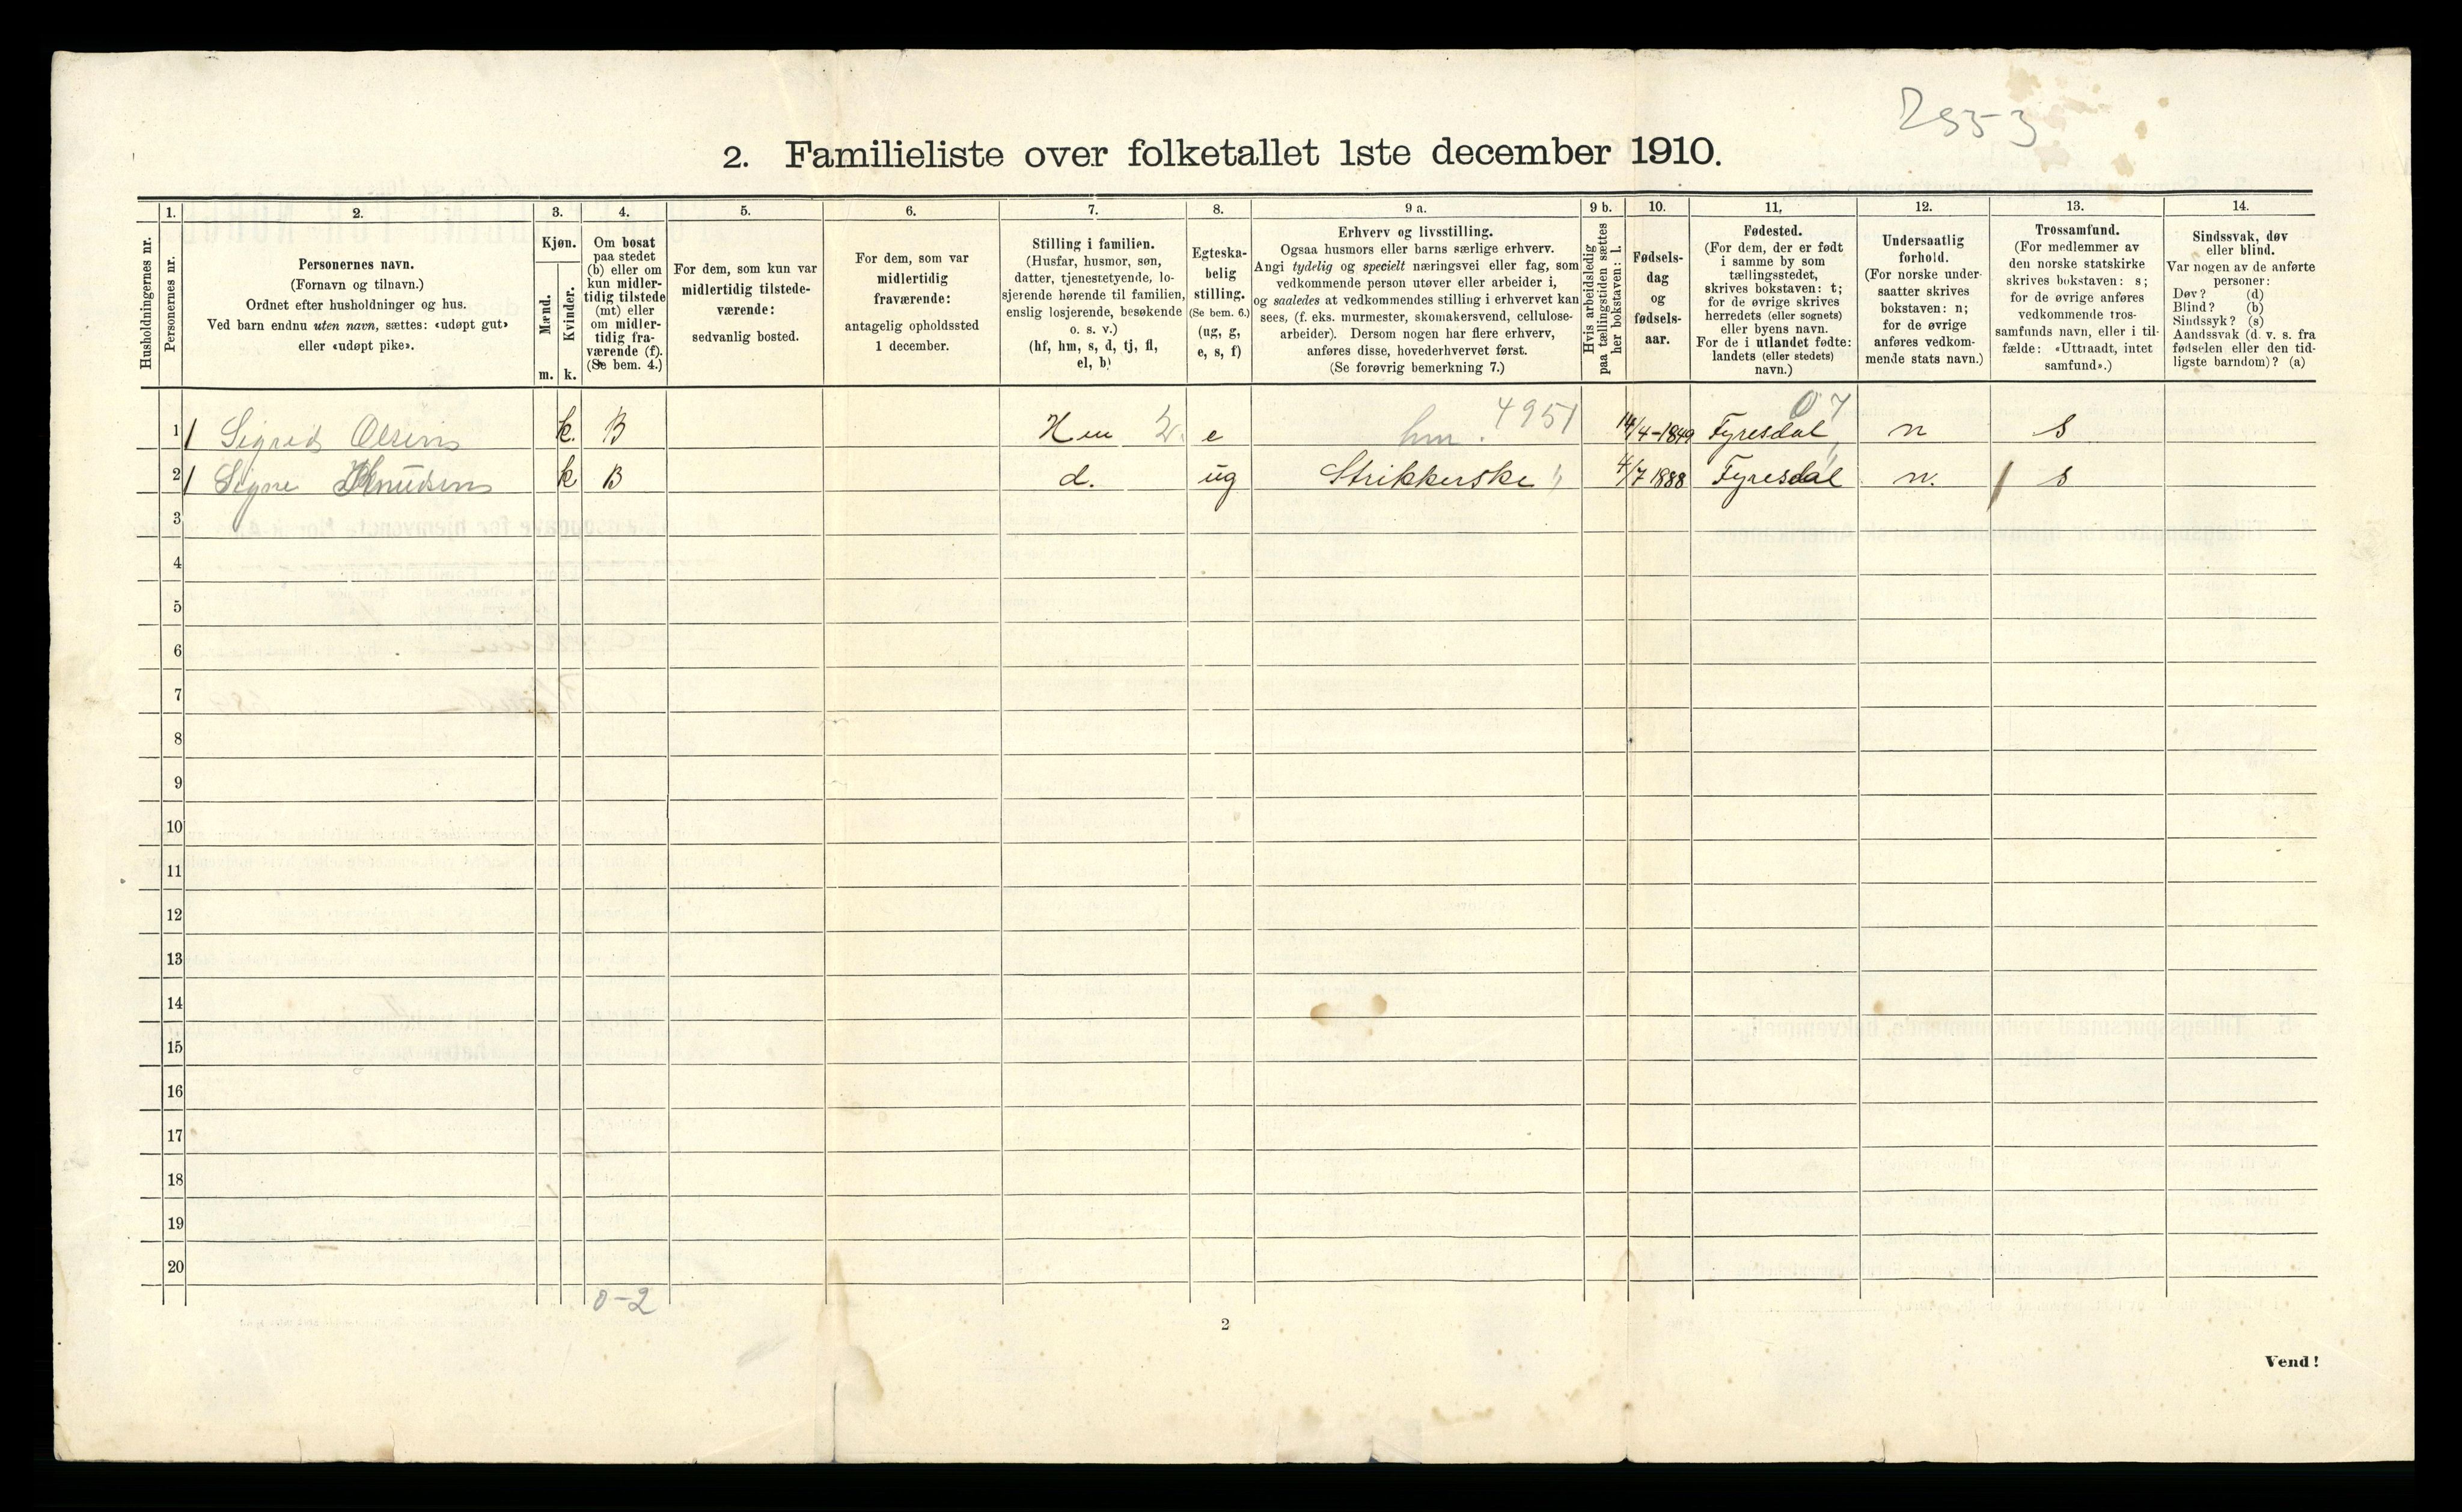 2. Familieliste over folketallet 1ste december 1910.
Husholdningernes nr.
1.
Personernes nr.
2.
Personernes navn.
(Fornavn og tilnavn.)
Ordnet efter husholdninger og hus.
Ved barn endnu uten navn, sættes: «udøpt gut»
eller «udøpt pike».
3.
Kjøn.
Mænd.
Kvinder.
m. k.
4.
Om bosat
paa stedet
(b) eller om
kun midler-
tidig tilstede
(mt) eller
om midler-
tidig fra-
værende (f).
(Se bem. 4.)
5.
For dem, som kun var
midlertidig tilstede-
værende:
sedvanlig bosted.
6.
For dem, som var
midlertidig
fraværende:
antagelig opholdssted
1 december.
7.
Stilling i familien.
(Husfar, husmor, søn,
datter, tjenestetyende, lo-
sjerende hørende til familien,
enslig losjerende, besøkende
o. s. v.)
(hf, hm, s, d, tj, fl,
el, b)
8.
Egteska-
belig
stilling.
(Se bem. 6.)
(ug, g,
e, s, f)
9 a.
Erhverv og livsstilling.
Ogsaa husmors eller barns særlige erhverv.
Angi tydelig og specielt næringsvei eller fag, som
vedkommende person utøver eller arbeider i,
og saaledes at vedkommendes stilling i erhvervet kan
sees, (f. eks. murmester, skomakersvend, cellulose-
arbeider). Dersom nogen har flere erhverv,
anføres disse, hovederhvervet først.
(Se forøvrig bemerkning 7.)
9 b.
Hvis arbeidsledig
paa tællingstiden sættes
her bokstaven: l.
10.
Fødsels-
dag
og
fødsels-
aar.
11.
Fødested.
(For dem, der er født
i samme by som
tællingsstedet,
skrives bokstaven: t;
for de øvrige skrives
herredets (eller sognets)
eller byens navn.
For de i utlandet fødte:
landets (eller stedets)
navn.)
12.
Undersaatlig
forhold.
(For norske under-
saatter skrives
bokstaven: n;
for de øvrige
anføres vedkom-
mende stats navn.)
13.
Trossamfund.
(For medlemmer av
den norske statskirke
skrives bokstaven: s;
for de øvrige anføres
vedkommende tros-
samfunds navn, eller i til-
fælde: «Uttraadt, intet
samfund».)
14.
Sindssvak, døv
eller blind.
Var nogen av de anførte
personer:
Døv? (d)
Blind? (b)
Sindssyk? (s)
Aandssvak (d. v. s. fra
fødselen eller den tid-
ligste barndom)? (a)
1 Sigrid Olsen k. B Hm e hm. 4951 14/4-1849 Fyresdal 07 n s
2 Signe Knudsen k B d. ug Strikkerske 4/7 1888 Fyresdal n. s
3
4
5
6
7
8
9
10
11
12
13
14
15
16
17
18
19
20
0-2
2
Vend!